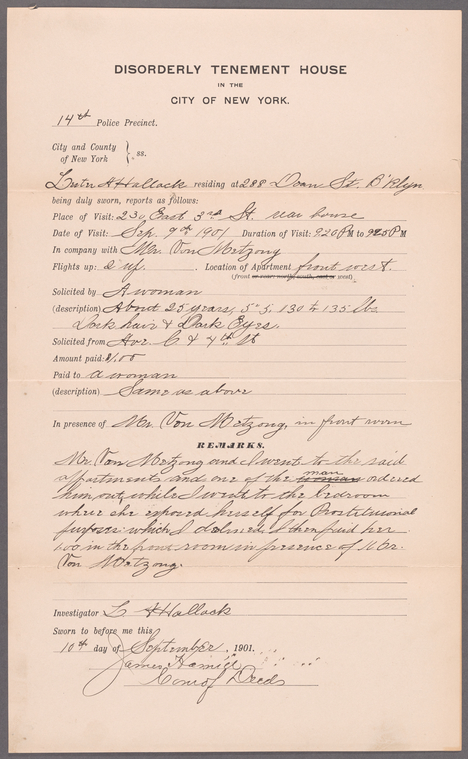 DISORDERLY TENEMENT HOUSE
IN THE
CITY OF NEW YORK.
14th Police Precinct.
City and County
of New York } ss.
H Hallock residing at 288 St. B'klyn
being duly sworn, reports as follows:
Place of Visit: 230 East 3rd St. rear house
Date of Visit: Sep. 9th 1901 Duration of Visit: 920 PM to 925 PM
In company with Mr. Von Metzong
Flights up: 2 up. Location of Apartment front west.
(front or rear; north, south, east or west)
Solicited by A woman
(description) About 25 years, 5-5, 130 to 135 lbs
Dark hair & Dark Eyes.
Solicited from Ave. C & 4th St
Amount paid: $1.00
Paid to a woman
(description) Same as above
In presence of Mr. Von Metzong, in front room
REMARKS.
Mr. Von Metzong and I went to the said
apartments and one of the man woman ordered
him out, while I went to the bedroom
where she exposed herself for Prostitutional
purposes which I declined. I then paid her
1.00 in the front room in presence of Mr.
Von Metzong.
Investigator L H Hallock
Sworn to before me this
10th day of September, 1901.
James
Com of Deeds